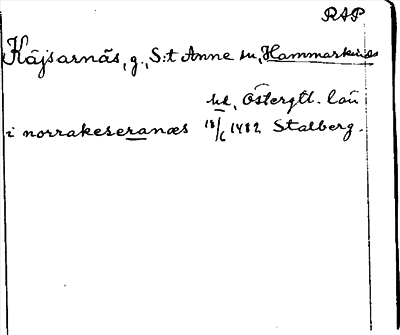 RAP
Käjsarnäs, g., S:t Anne sn, Hammarkinds
hd, Östergtl. län
i norrakeseranæs 18/6 1482 Stalberg.